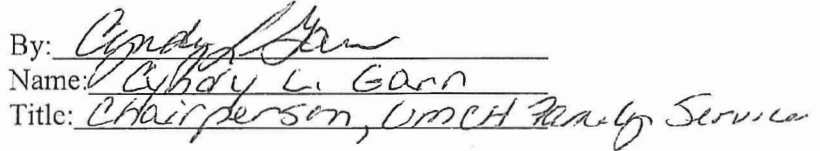 By: Cyndy L Garn
Name: Cyndy L. Garn
Title: Chairperson, UMCH Family Services